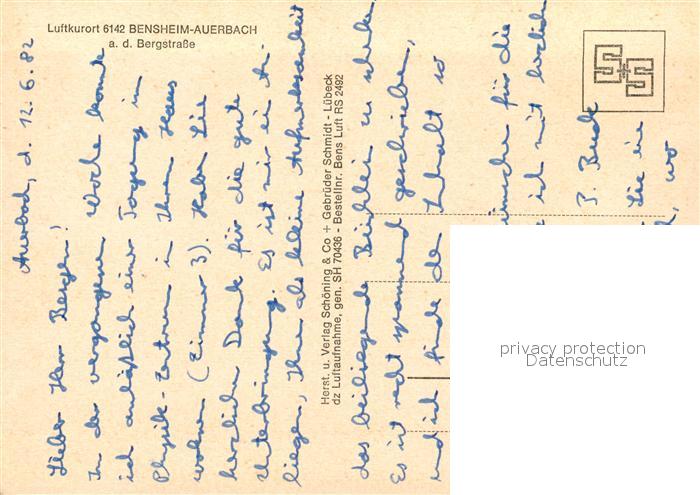 Luftkurort 6142 BENSHEIM-AUERBACH
a. d. Bergstraße
Auerbach, d. 12. 6. 82
Lieber Herr Bergen!
In der vergangenen Woche konnte
ich anläßlich einer Tagung im
Physik-Zentrum in Ihrem Haus
wohnen (Zimmer 3). Haben Sie
herzlichen Dank für die gute
Unterbringung. Es ist mir ein An-
liegen, Ihnen als kleine Aufmerksamkeit
Herst. u. Verlag Schöning & Co + Gebrüder Schmidt - Lübeck
dz Luftaufnahme, gen. SH 70436 - Bestellnr. Bens Luft RS 2492
das beiliegende Büchlein zu
Es ist recht spannend geschrieben,
und ich finde den Inhalt so
für die
ich mit herzlich
Sie in
wo
privacy protection
Datenschutz